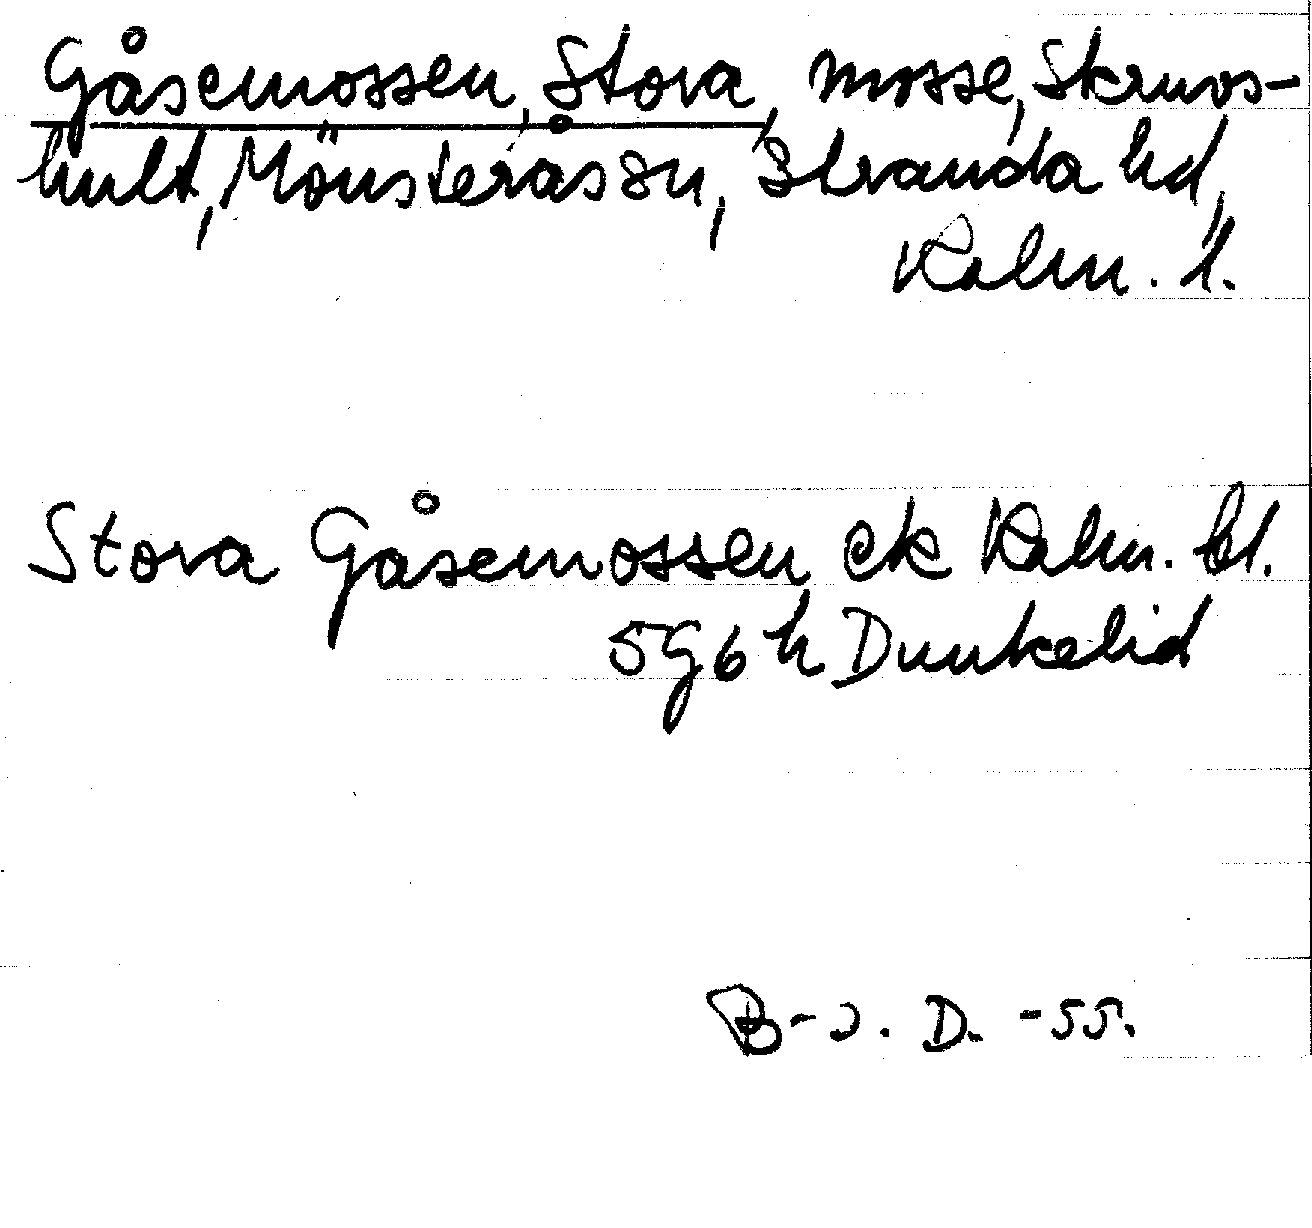 Gåsemossen, Stora, mosse, Skruvs-
hult, Mönsterås sn, Stranda hd,
Kalm. l.
Stora Gåsemossen ek Kalm. bl.
5G6h Dunkelid
B-J. D. -55.